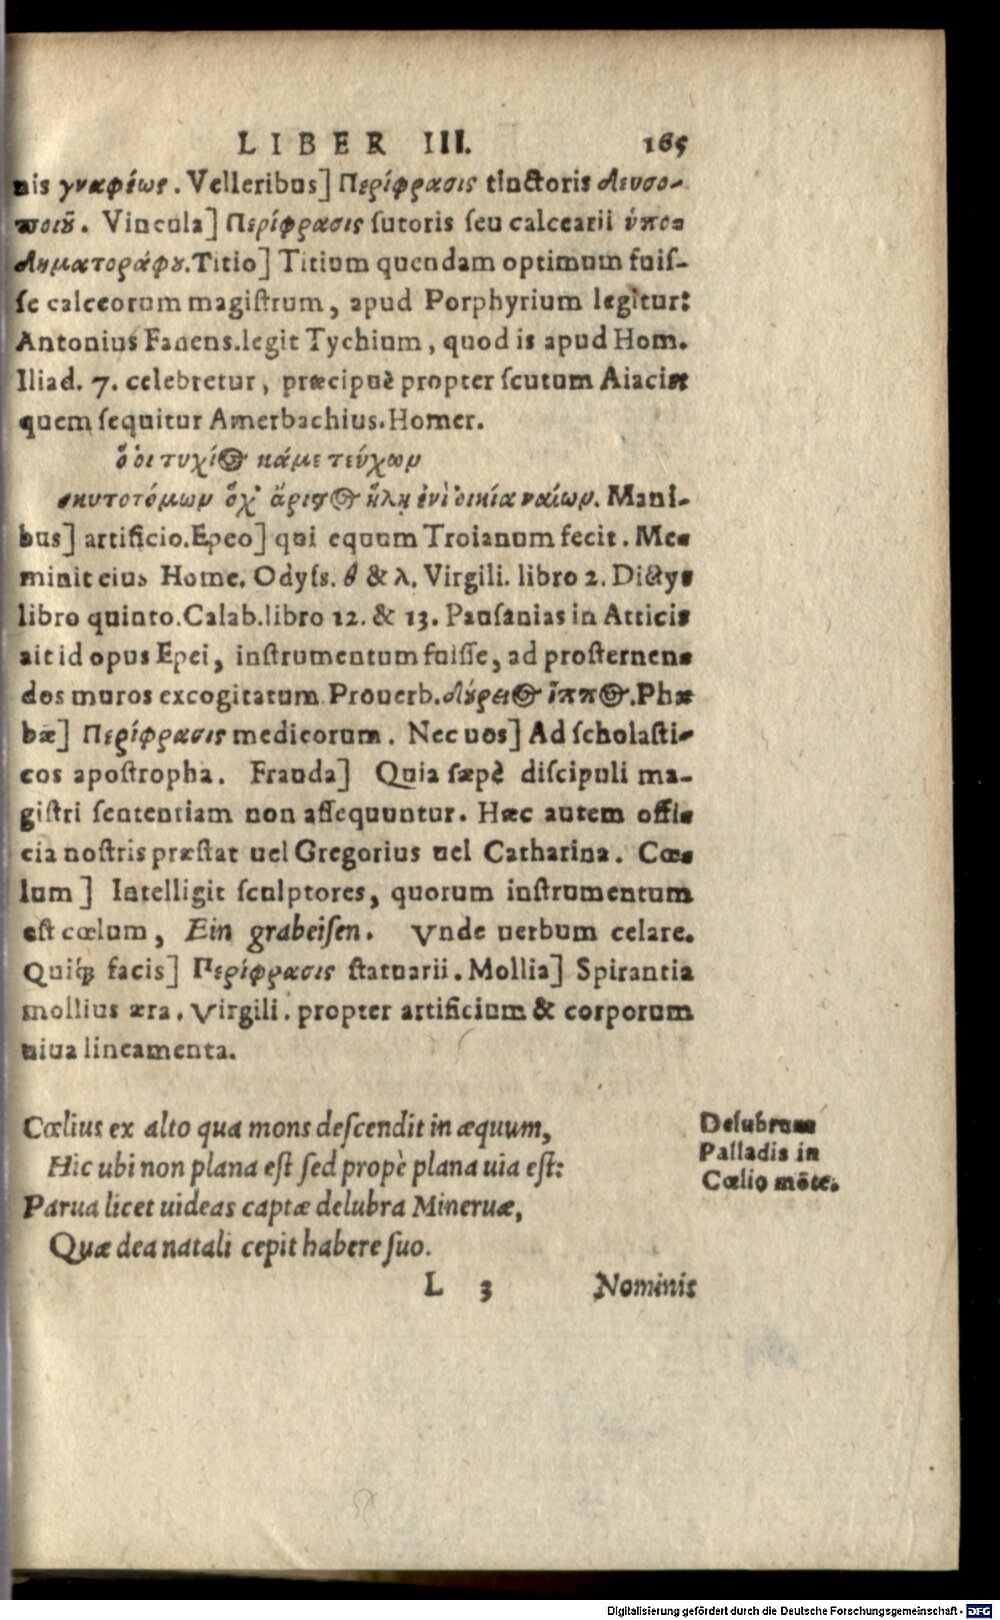 LIBER III. 165
nis γναφέως. Velleribus] Περίφρασις tinctoris δευσο-
ποιοῦ. Vincula] Περίφρασις sutoris seu calcearii ὑπο-
δηματοράφου. Titio] Titium quendam optimum fuis-
se calceorum magistrum, apud Porphyrium legitur:
Antonius Fanens. legit Tychium, quod is apud Hom.
Iliad. 7. celebretur, præcipuè propter scutum Aiacis
quem sequitur Amerbachius. Homer.
ὅ οἱ τυχίος κάμε τεύχων
σκυτοτόμων ὄχ' ἄριστος ὕλῃ ἐνὶ οἰκία ναίων. Mani-
bus] artificio. Epeo] qui equum Troianum fecit. Me-
minit eius Home. Odyss. θ & λ. Virgili. libro 2. Dictys
libro quinto. Calab. libro 12. & 13. Pausanias in Atticis
ait id opus Epei, instrumentum fuisse, ad prosternen-
dos muros excogitatum. Prouerb. δύρειος ἵππος. Phœ
bæ] Περίφρασις medicorum. Nec uos] Ad scholasti-
cos apostropha. Frauda] Quia sæpè discipuli ma-
gistri sententiam non assequuntur. Hæc autem offi-
cia nostris præstat uel Gregorius uel Catharina. Cœ-
lum] Intelligit sculptores, quorum instrumentum
est cœlum, Ein grabeisen. Vnde uerbum celare.
Quiq́ꝫ facis] Περίφρασις statuarii. Mollia] Spirantia
mollius æra. Virgili. propter artificium & corporum
uiua lineamenta.
Cœlius ex alto qua mons descendit in æquum,
Hic ubi non plana est sed propè plana uia est:
Parua licet uideas captæ delubra Mineruæ,
Quæ dea natali cepit habere suo.
Delubrum
Palladis in
Cœlio mōte.
L 3 Nominis
Digitalisierung gefördert durch die Deutsche Forschungsgemeinschaft - DFG